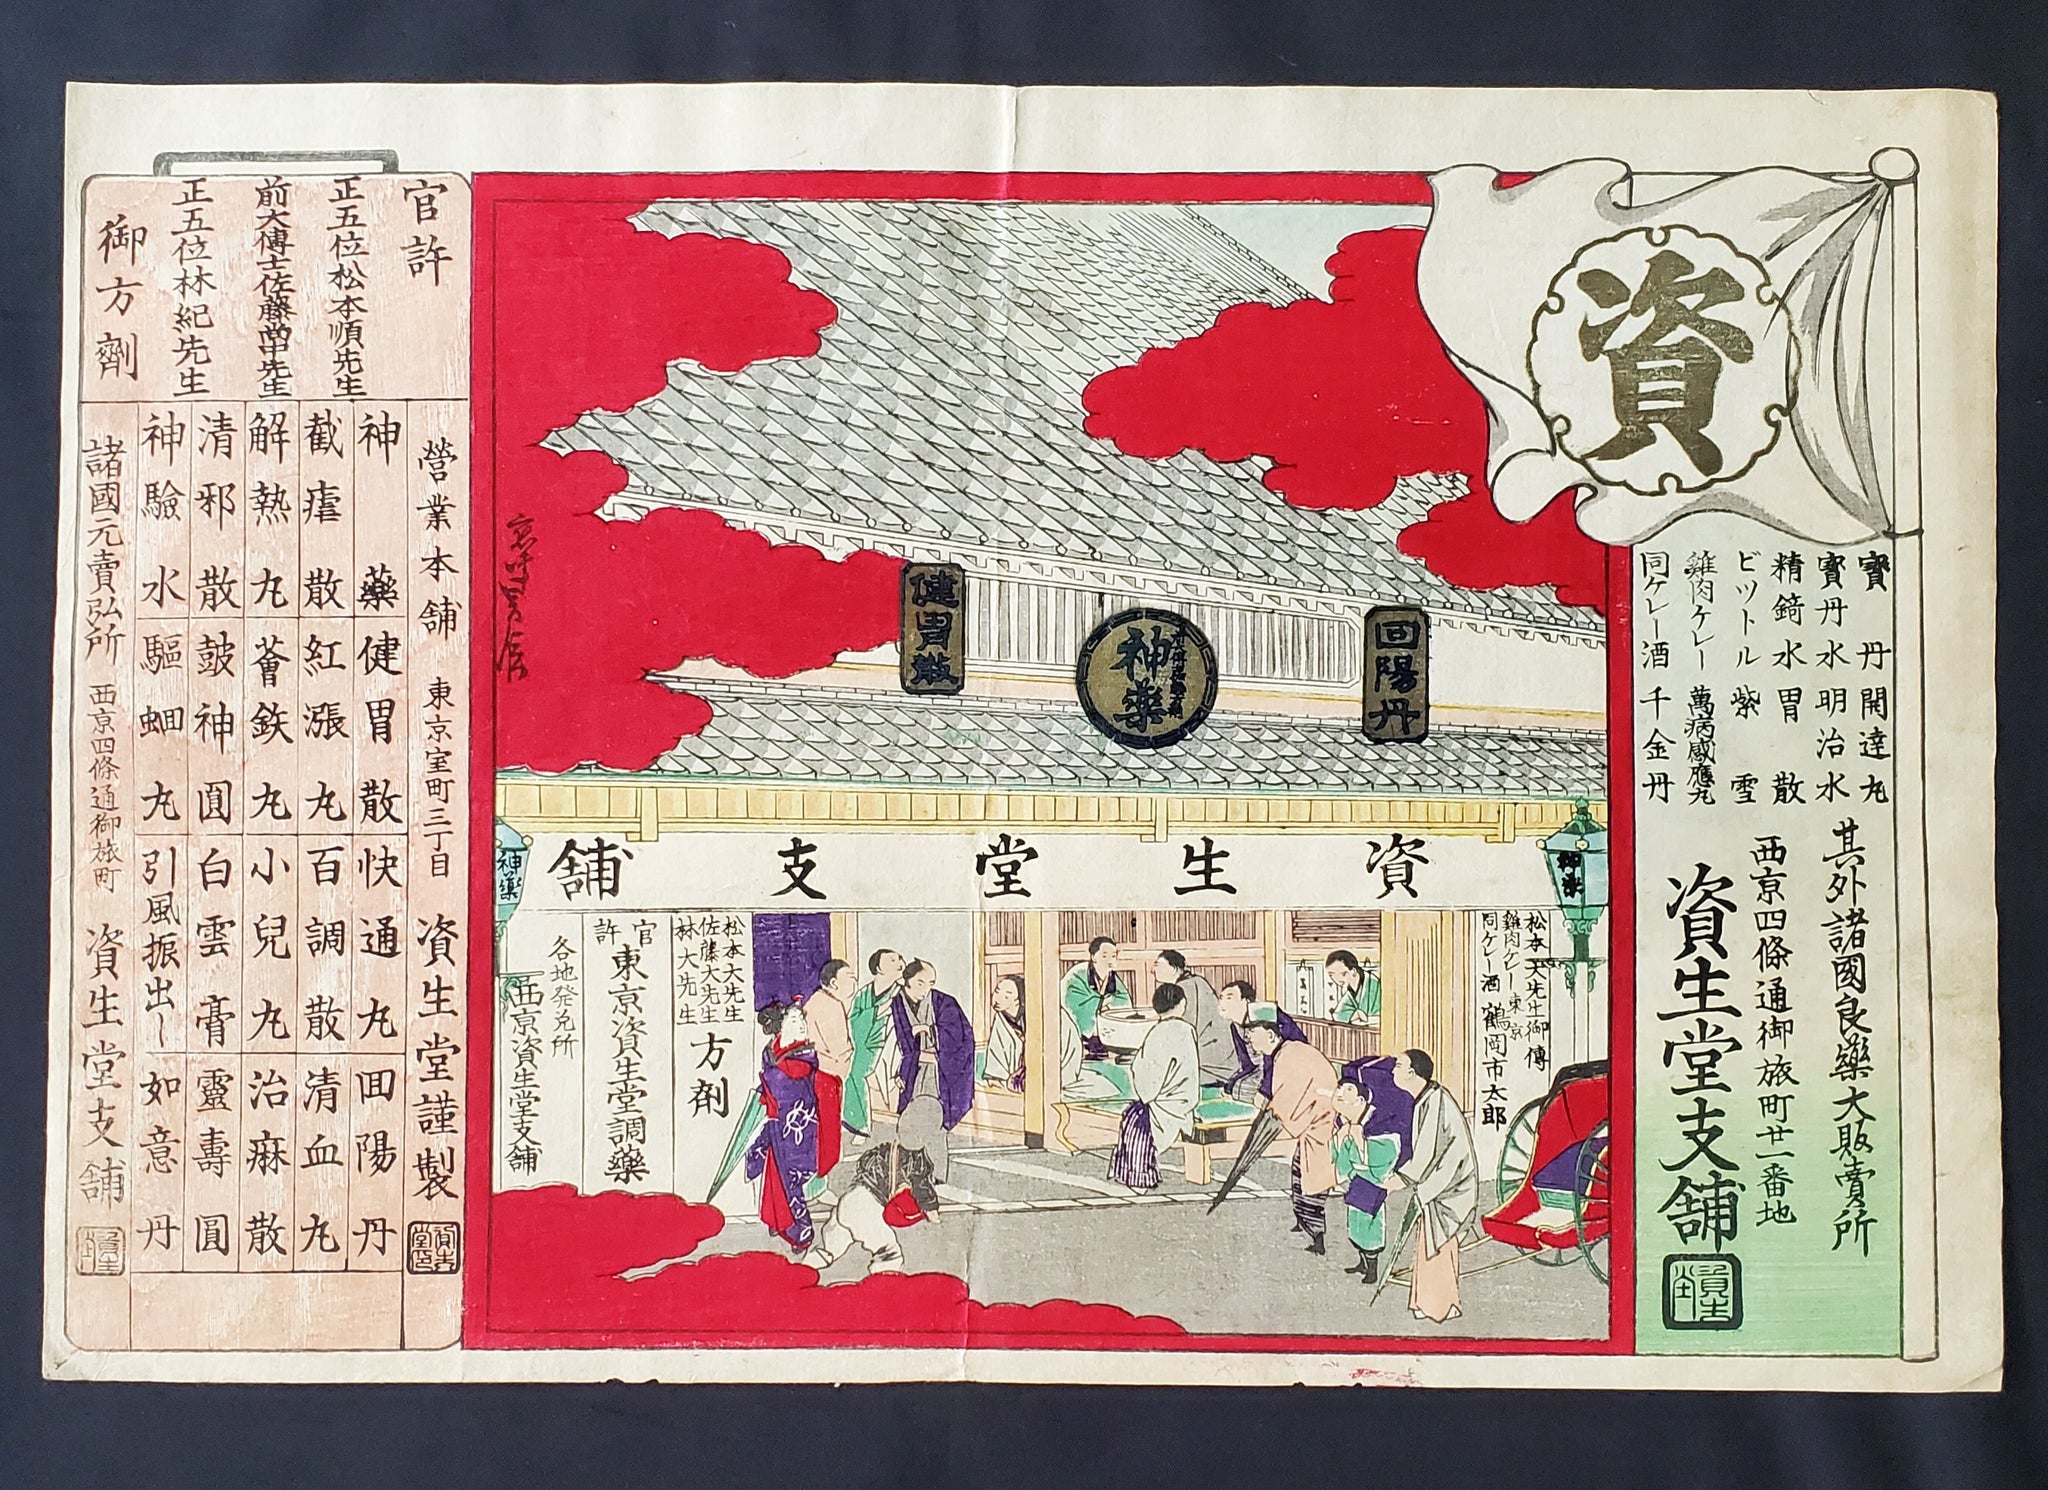 資
寶丹 開達丸
寳丹水 明治水
精錡水 胃散
ビツトル 紫雪
雞肉ケレー 萬病感應丸
同ケレー酒 千金丹
其外諸國良藥大販賣所
西京四條通御旅町廿一番地
資生堂支舖
回陽丹
神藥
健胃散
資生堂支舖
神藥
神藥
松本大先生御傳
雞肉ケレー 東京
同ケレー酒 鶴岡市太郎
松本大先生
佐藤大先生
林大先生
方劑
官許
東京資生堂調藥
各地発兌所
西京資生堂支舖
官許
正五位松本順先生
前大傅士佐藤尚中先生
正五位林紀先生
御方劑
營業本舖 東京室町三丁目 資生堂謹製
神藥 健胃散 快通丸 回陽丹
截瘧散 紅漲丸 百調散 清血丸
解熱丸 薈鉄丸 小兒丸 治痳散
清邪散 皷神圓 白雲膏 靈壽圓
神驗水 驅蛔丸 引風振出し 如意丹
諸國元賣弘所 西京四條通御旅町 資生堂支舖